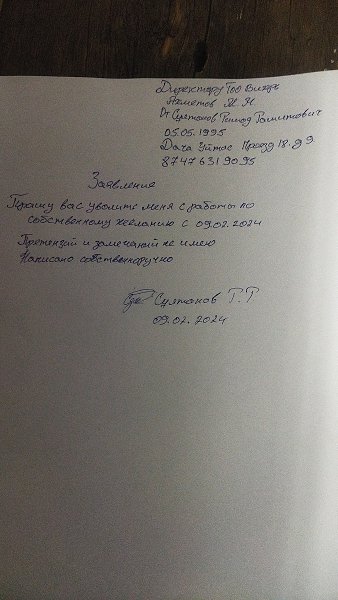 Директору Тоо
Ахметов М. М.
От Султанов
05.05.1995
Дача Уйтас Проезд 18. д 9.
8747 631 90 95
Заявление
Прошу вас уволить меня с работы по
собственному желанию с 09.02.2024
Претензий и замечаний не имею
Написано собственноручно
Султанов Т. Т
09.02.2024